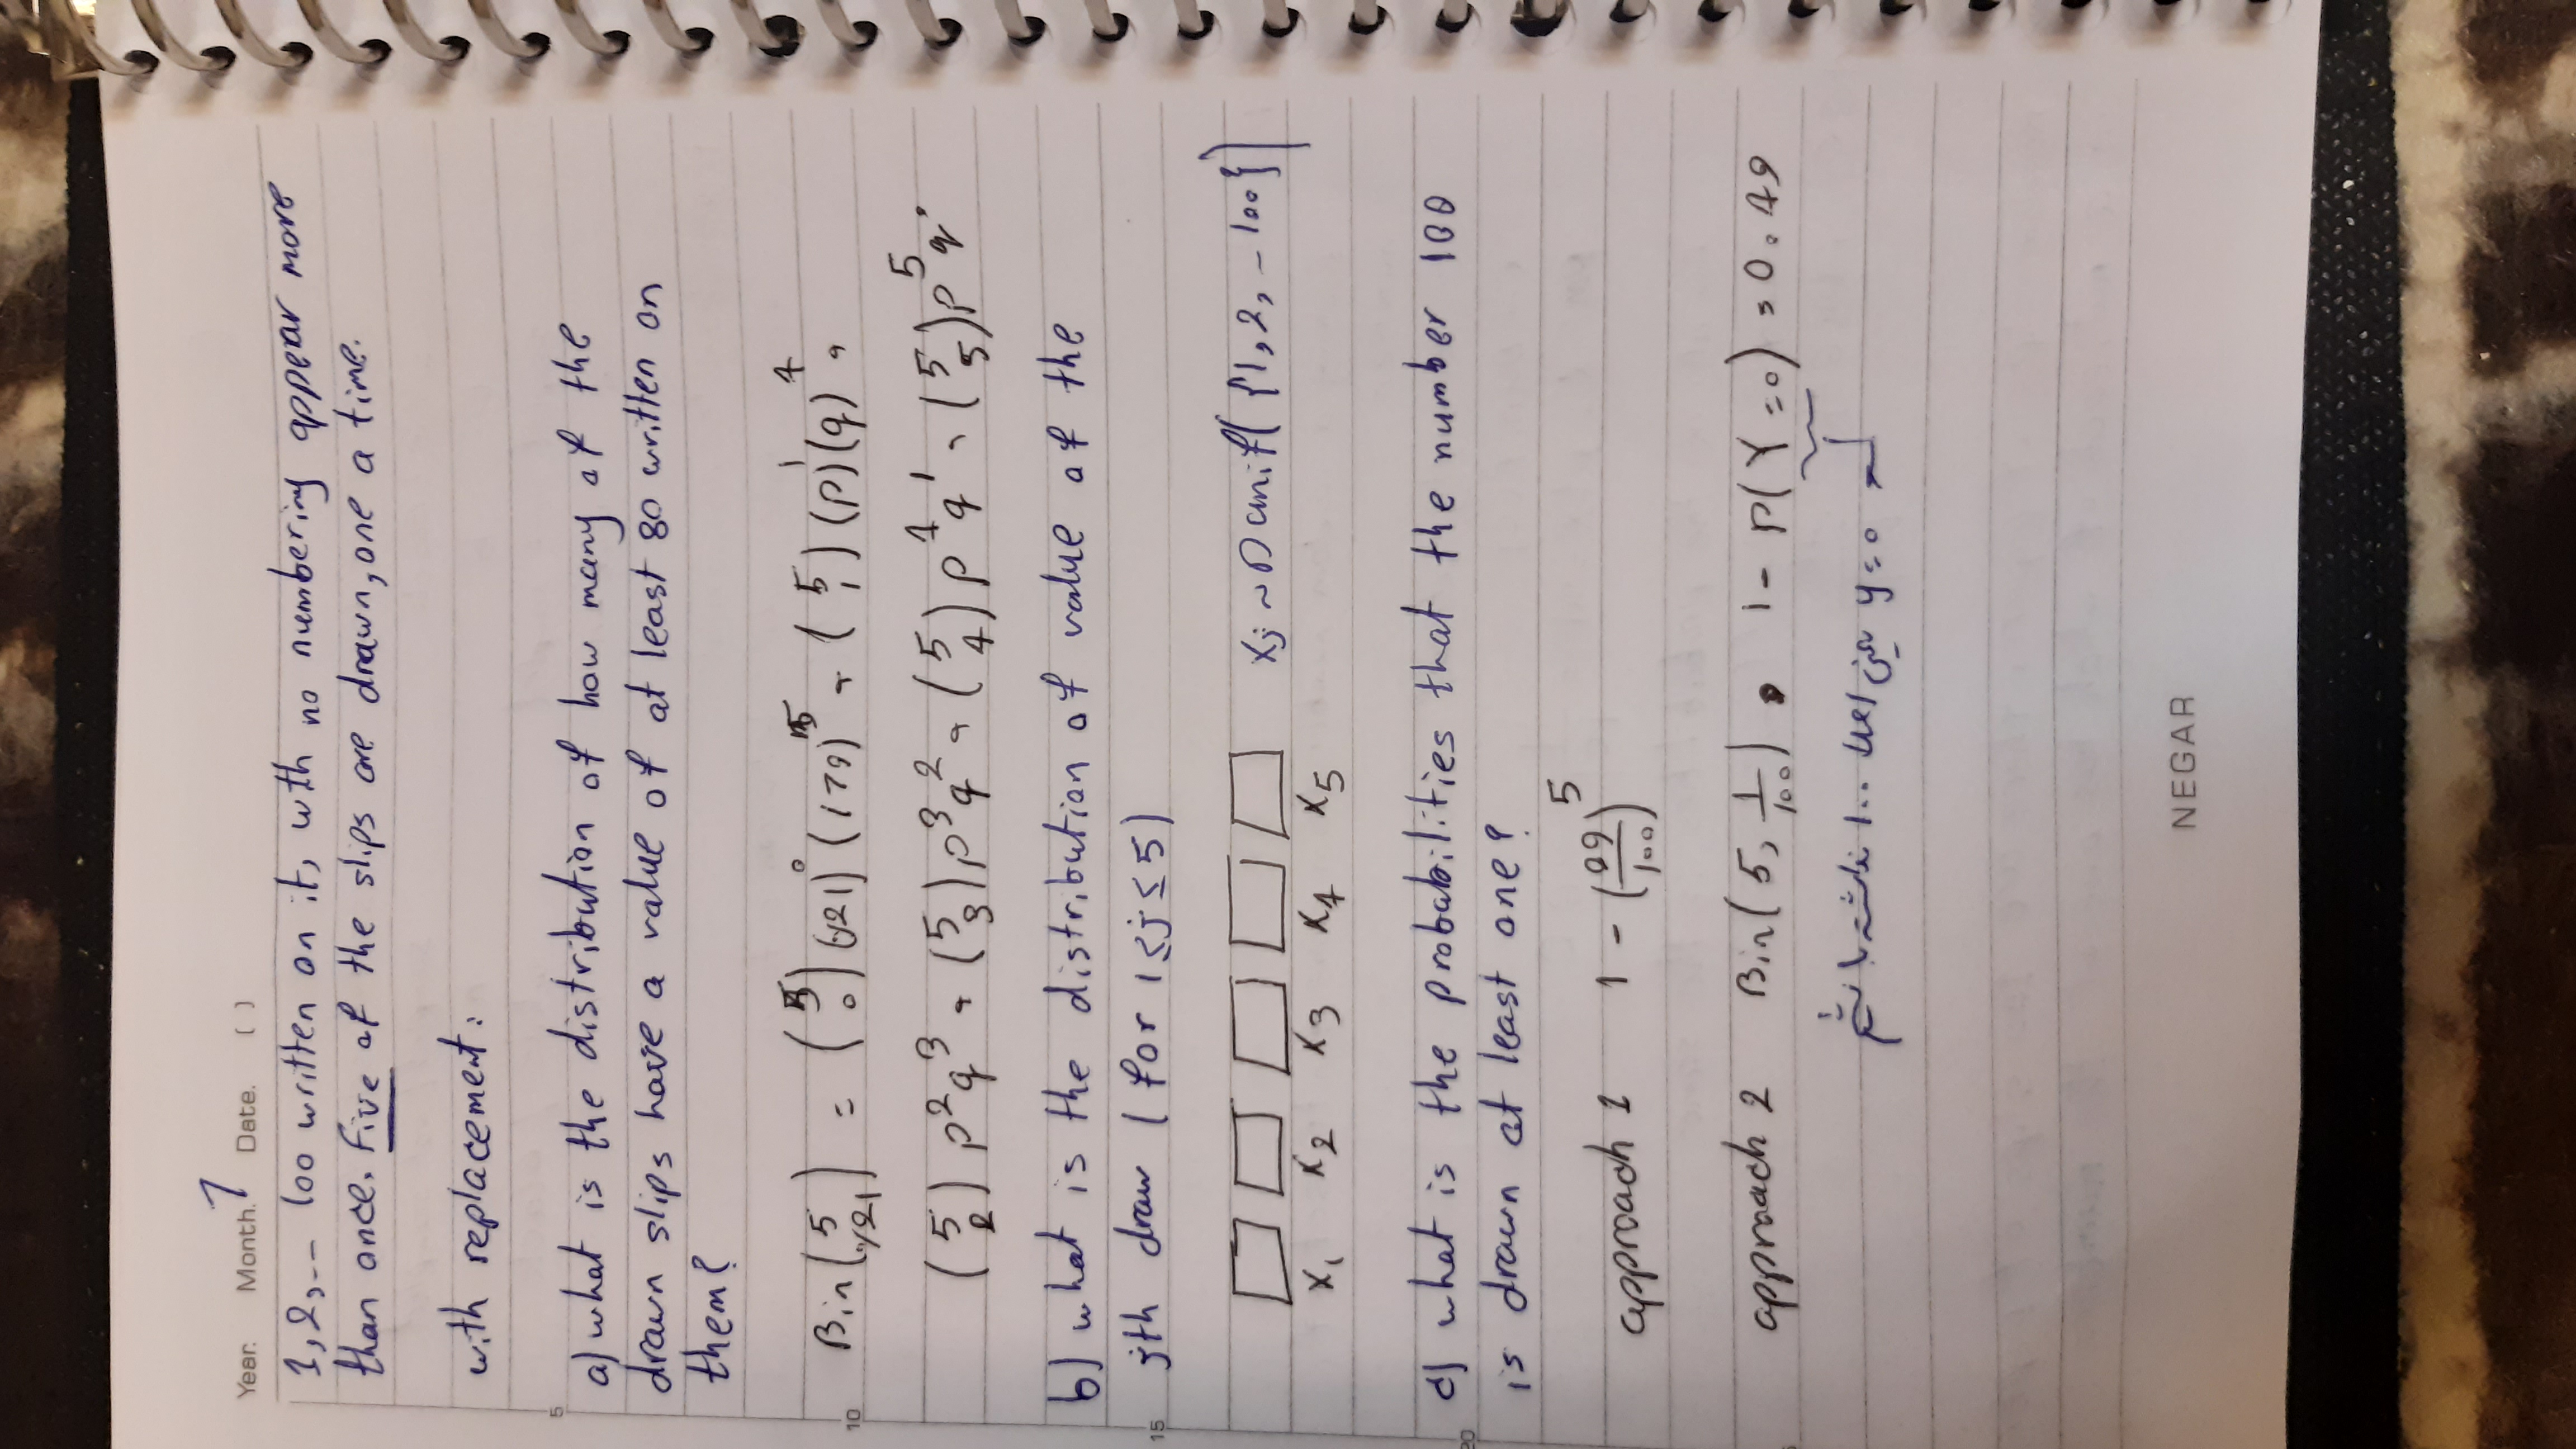 Year. Month. 7 Date. ( )
1,2,-- 100 written on it, with no numbering appear more
than once. Five of the slips are drawn, one a time.
with replacement:
a) what is the distribution of how many of the
drawn slips have a value of at least 80 written on
them?
Bin(5, 1/21) = (5 0) (1/21)^0 (179)^5, (5 1) (P)^1 (q)^4,
(5 2) P^2 q^3, (5 3) P^3 q^2, (5 4) P^4 q^1, (5 5) P^5 q^0
b) what is the distribution of value of the
jth draw (for 1≤j≤5)
Xj ~ Dunif({1,2,-100})
X1 X2 X3 X4 X5
c) what is the probabilities that the number 100
is drawn at least one?
approach 1 1 - (99/100)^5
approach 2 Bin(5, 1/100), 1 - P(Y=0) = 0.49
y=0 یعنی اصلا 100 نداشته باشیم
5
10
15
20
NEGAR